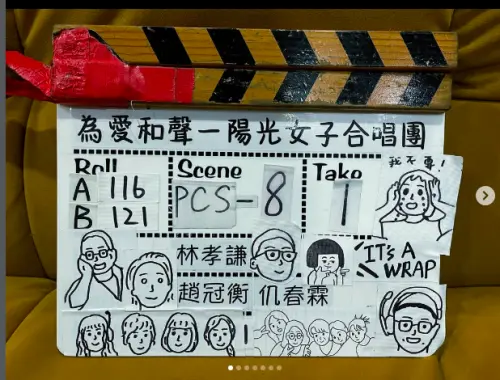 為愛和聲一陽光女子合唱團
我不要!
Roll Scene Take
A 116 PCS-8 1
B 121
林孝謙
IT'S A
WRAP
趙冠衡 仉春霖